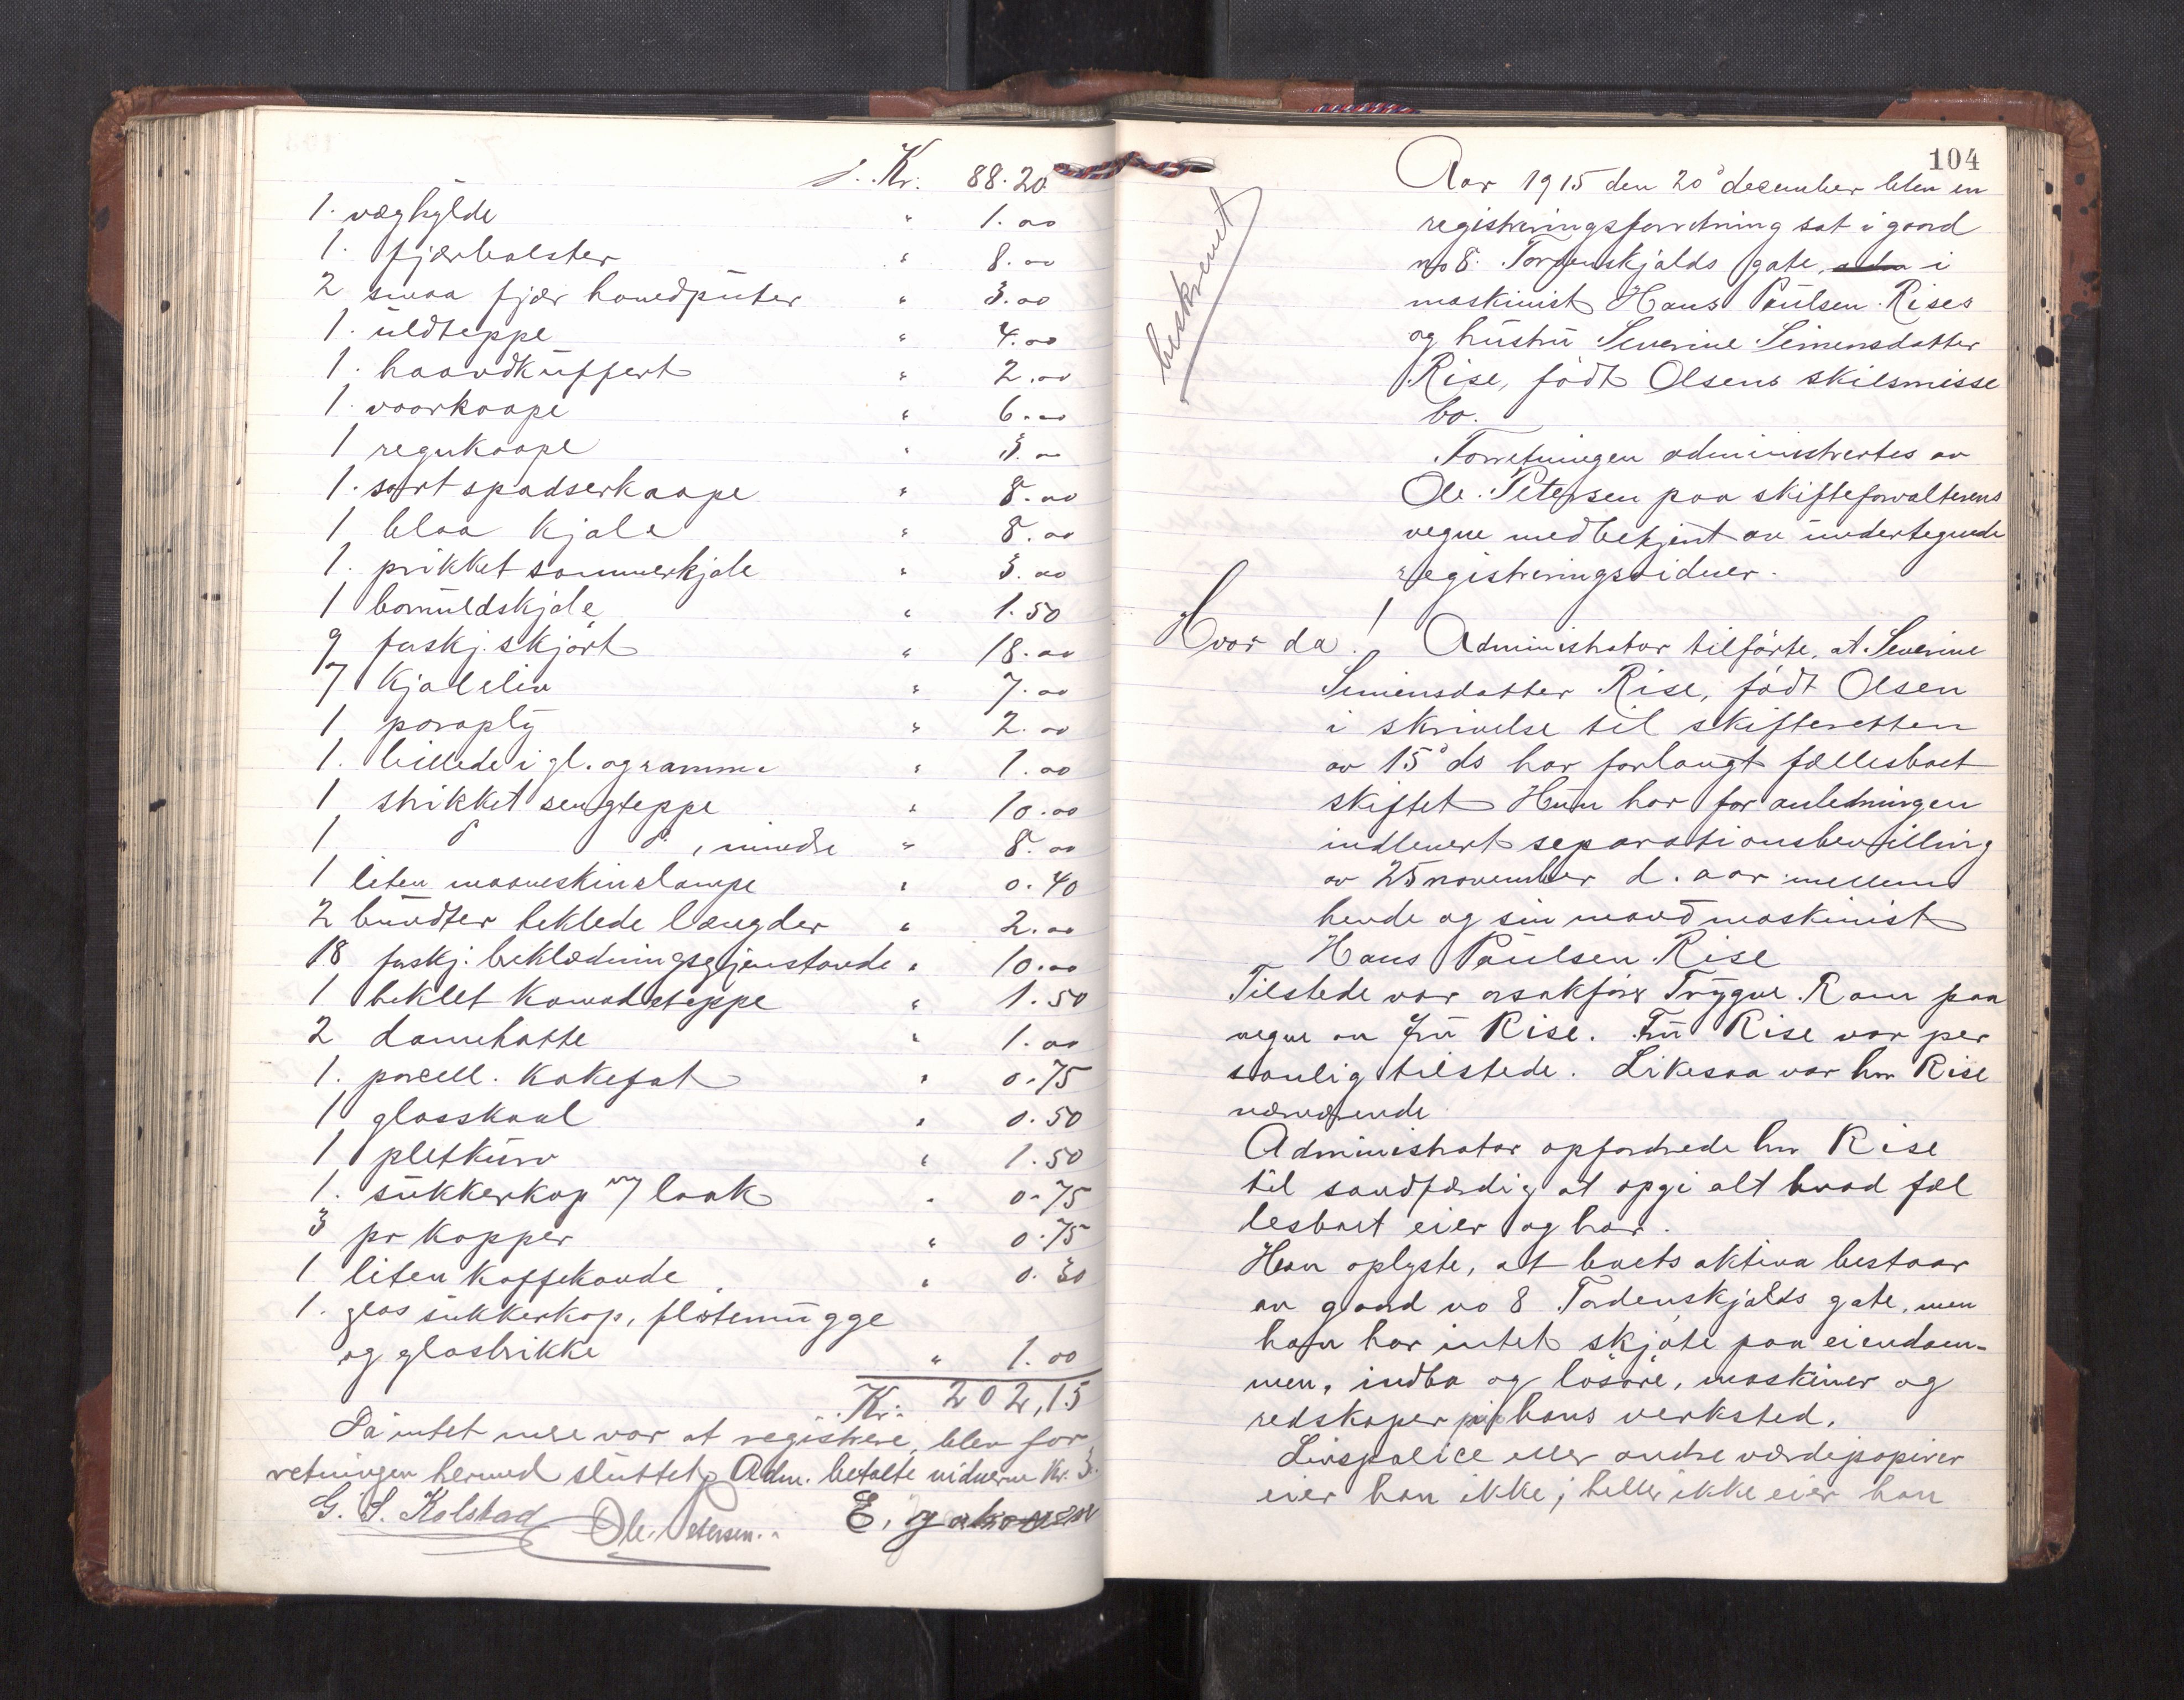 Kr. 88.20
1. væghylde " 1.00
1. fjærbolster " 8.00
2 smaa fjær hovedputer " 3.00
1. uldteppe " 4.00
1. haandkuffert " 2.00
1. vaarkaape " 6.00
1 regnkaape " 3.00
1. sort spadserkaape " 8.00
1 blaa kjole " 8.00
1. prikket sommerkjole " 3.00
1 bomuldskjole " 1.50
9 forskj. skjört " 18.00
7 kjoleliv " 7.00
1 paraply " 2.00
1. billede i gl. og ramme " 1.00
1 strikket sengteppe " 10.00
1 do do, mindre " 8.00
1 liten maaneskinslampe " 0.40
2 bundter heklede længder " 2.00
18 forskj. beklædningsgjenstande " 10.00
1 heklet komodeteppe " 1.50
2 damehatte " 1.00
1. porcell. kakefat " 0.75
1 glasskaal " 0.50
1 pletkurv " 1.50
1. sukkerkop m/ laak " 0.75
3 pr kopper " 0.75
1 liten kaffekande " 0.30
1. glas sukkerkop, flötemugge
og glasbrikke " 1.00
Kr. 202,15
Da intet mere var at registrere, blev for
retningen hermed sluttet. Adm. betalte vidnerne Kr. 3.
G. S. Kolstad Ole Petersen.
104
beskrevet
Aar 1915 den 20de desember blev en
registreringsforretning sat i gaard
no 8. Tordenskjolds gate, i
maskinist Hans Paulsen Rises
og hustru Severine Simensdatter
Rise, födt Olsens skilsmisse
bo.
Forretningen administrertes av
Ole Petersen paa skifteforvalterens
vegne med bekjent av undertegnede
registreringsvidner.
Hvor da! Administrator tilförte, at Severine
Simensdatter Rise, födt Olsen
i skrivelse til skifteretten
av 15de ds har forlangt fællesboet
skiftet Hun har for anledningen
indlevert separationsbevilling
av 25 november d. aar mellem
hende og sin mand maskinist
Hans Paulsen Rise
Tilstede var o.r.sakförer Trygve Ram paa
vegne av fru Rise. Fru Rise var per
sonlig tilstede. Likesaa var hr Rise
nærværende
Administrator opfordrede hr Rise
til sandfærdig at opgi alt hvad fæl
lesboet eier og har.
Han oplyste, at boets aktiva bestaar
av gaard no 8 Tordenskjolds gate, men
han har intet skjöte paa eiendom-
men, indbo og lösöre, maskiner og
redskaper paa hans verksted.
Livspolice eller andre værdipapirer
eier han ikke; heller ikke eier han